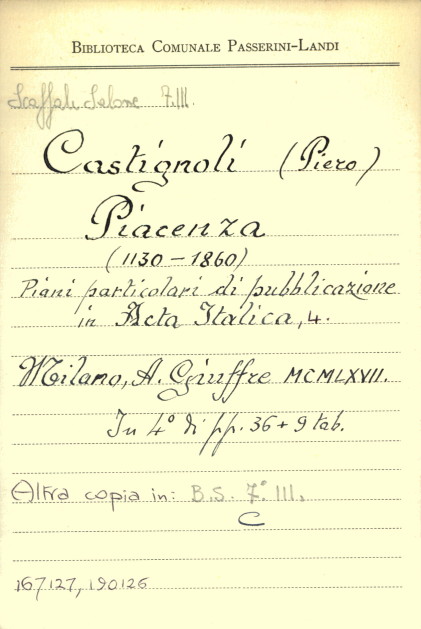 BIBLIOTECA COMUNALE PASSERINI-LANDI
Scaffale Salone 7.III.
Castignoli (Piero)
Piacenza
(1130-1860)
Piani particolari di pubblicazione
in Acta Italica, 4.
Milano, A. Giuffre MCMLXVII.
In 4° di pp. 36 + 9 tab.
Altra copia in: B.S. 7° III.
C
167127, 190126